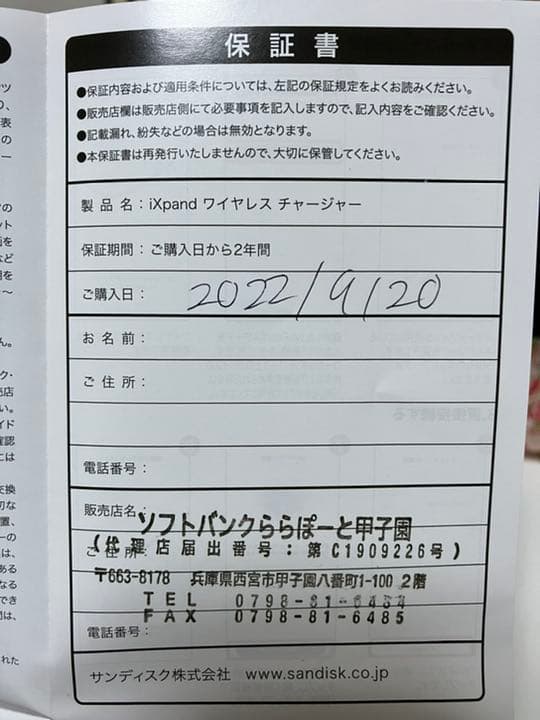 保証書
●保証内容および適用条件については、左記の保証規定をよくお読みください。
●販売店欄は販売店側にて必要事項を記入しますので、記入内容をご確認ください。
●記載漏れ、紛失などの場合は無効となります。
●本保証書は再発行いたしませんので、大切に保管してください。
製品名：iXpand ワイヤレス チャージャー
保証期間：ご購入日から2年間
ご購入日： 2022/9/20
お名前：
ご住所：
電話番号：
販売店名：
ソフトバンクららぽーと甲子園
(代理店届出番号：第C1909226号)
ご住所：
〒663-8178 兵庫県西宮市甲子園八番町1-100 2階
TEL 0798-81-6484
FAX 0798-81-6485
電話番号：
サンディスク株式会社 www.sandisk.co.jp